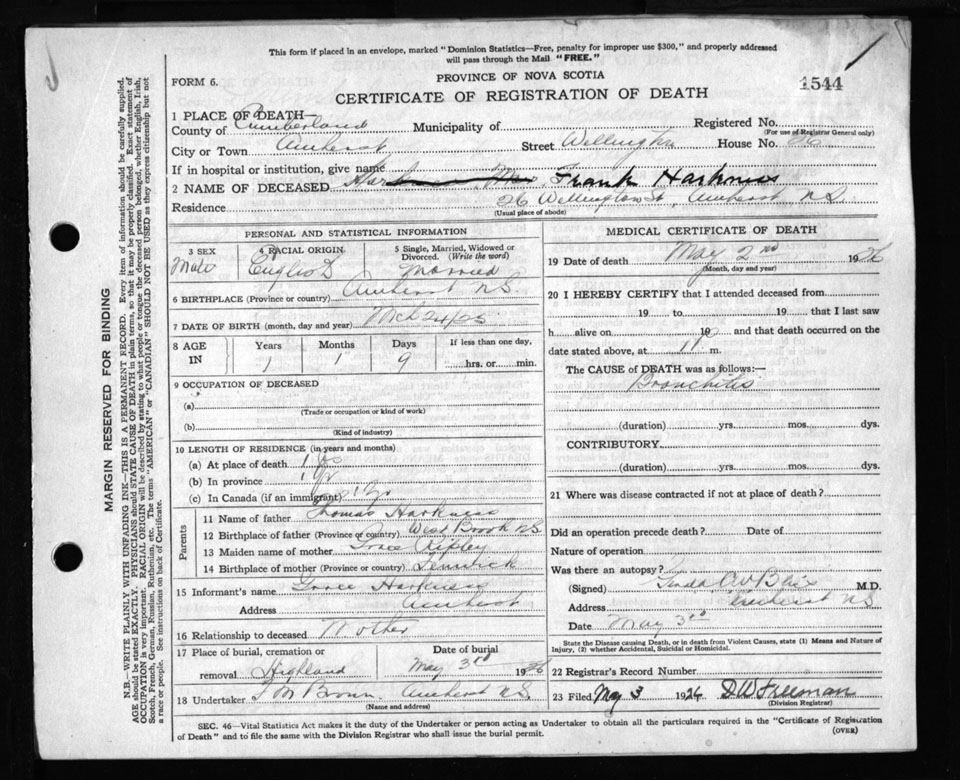 This form if placed in an envelope, marked "Dominion Statistics—Free, penalty for improper use $300," and properly addressed
will pass through the Mail "FREE."
FORM 6.
PROVINCE OF NOVA SCOTIA
1544
CERTIFICATE OF REGISTRATION OF DEATH
1 PLACE OF DEATH—
County of Cumberland Municipality of Registered No.
(For use of Registrar General only)
City or Town Amherst Street Wellington House No. 26
If in hospital or institution, give name
2 NAME OF DECEASED Frank Harkness
Residence 26 Wellington St, Amherst N.S.
(Usual place of abode)
PERSONAL AND STATISTICAL INFORMATION
3 SEX Male
4 RACIAL ORIGIN English
5 Single, Married, Widowed or Divorced. (Write the word) Married
6 BIRTHPLACE (Province or country) Amherst N.S.
7 DATE OF BIRTH (month, day and year) Mch 24/25
8 AGE IN Years 1 Months 1 Days 9 If less than one day, hrs. or min.
9 OCCUPATION OF DECEASED
(a)
(Trade or occupation or kind of work)
(b)
(Kind of industry)
10 LENGTH OF RESIDENCE (in years and months)
(a) At place of death 1 yr
(b) In province 1 yr
(c) In Canada (if an immigrant) 1 yr
Parents
11 Name of father Thomas Harkness
12 Birthplace of father (Province or country) West Brook N.S.
13 Maiden name of mother Grace Ripley
14 Birthplace of mother (Province or country) Fenwick
15 Informant's name Grace Harkness
Address Amherst
16 Relationship to deceased Mother
17 Place of burial, cremation or removal Highland
Date of burial May 3rd 1926
18 Undertaker Brown Amherst N.S.
(Name and address)
MEDICAL CERTIFICATE OF DEATH
19 Date of death May 2nd 1926
(Month, day and year)
20 I HEREBY CERTIFY that I attended deceased from
19 to 19 that I last saw
h alive on 19 and that death occurred on the
date stated above, at 11 m.
The CAUSE of DEATH was as follows:—
Bronchitis
(duration) yrs. mos. dys.
CONTRIBUTORY
(duration) yrs. mos. dys.
21 Where was disease contracted if not at place of death?
Did an operation precede death? Date of
Nature of operation
Was there an autopsy?
(Signed) M.D.
Address Amherst N.S.
Date May 3rd
State the Disease causing Death, or in death from Violent Causes, state (1) Means and Nature of
Injury, (2) whether Accidental, Suicidal or Homicidal.
22 Registrar's Record Number
23 Filed May 3 1926 D W Freeman
(Division Registrar)
SEC. 46—Vital Statistics Act makes it the duty of the Undertaker or person acting as Undertaker to obtain all the particulars required in the "Certificate of Registration
of Death" and to file the same with the Division Registrar who shall issue the burial permit.
(OVER)
MARGIN RESERVED FOR BINDING
N.B.—WRITE PLAINLY WITH UNFADING INK—THIS IS A PERMANENT RECORD. Every item of information should be carefully supplied.
AGE should be stated EXACTLY. PHYSICIANS should STATE CAUSE OF DEATH in plain terms, so that it may be properly classified. Exact statement of
OCCUPATION is very important. RACIAL ORIGIN will be described by stating to what people or tongue the deceased person belonged, whether English, Irish,
Scotch, French, German, Russian, Ruthenian, etc. The terms "AMERICAN" or "CANADIAN" SHOULD NOT BE USED as they express citizenship but not
a race or people. See instructions on back of Certificate.